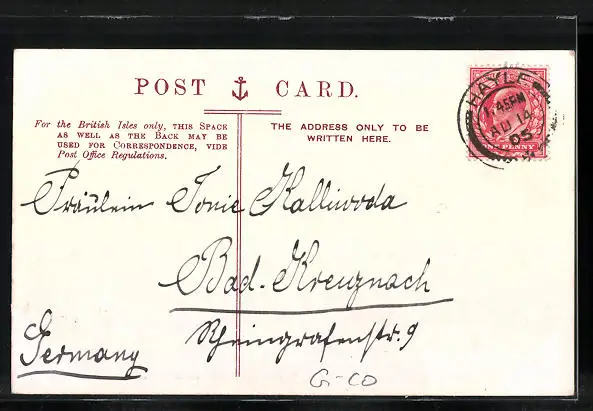 POST CARD.
For the British Isles only, THIS SPACE
AS WELL AS THE BACK MAY BE
USED FOR CORRESPONDENCE, VIDE
Post Office Regulations.
THE ADDRESS ONLY TO BE
WRITTEN HERE.
HAYLE
45PM
AU 14
05
ONE PENNY
Fräulein Tonie Kalliwoda
Bad-Kreuznach
Rheingrafenstr. 9
Germany
G-CO